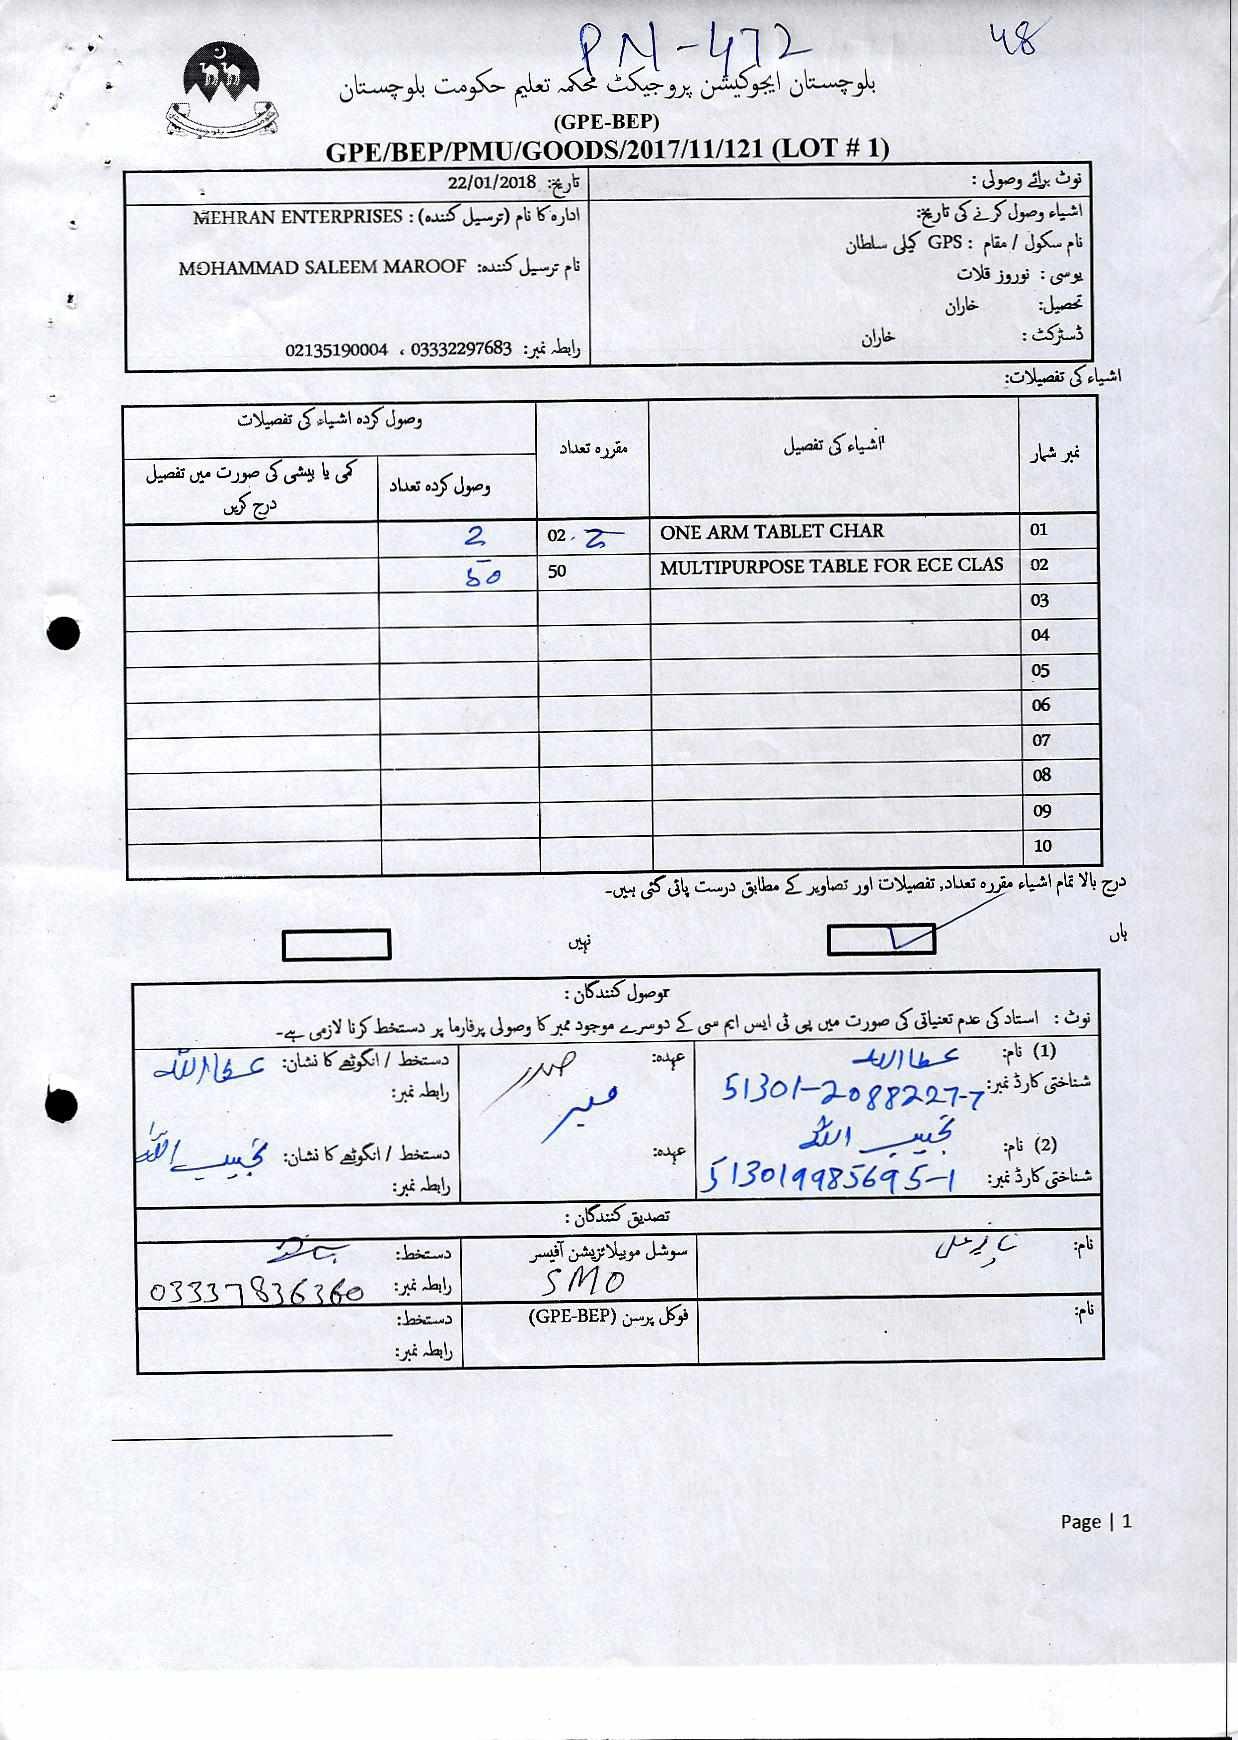 PN-472
48
بلوچستان ایجوکیشن پروجیکٹ محکمہ تعلیم حکومت بلوچستان
(GPE-BEP)
GPE/BEP/PMU/GOODS/2017/11/121 (LOT # 1)
نوٹ برائے وصولی :
تاریخ: 22/01/2018
اشیاء وصول کرنے کی تاریخ:
نام سکول / مقام : GPS کیلی سلطان
یوسی : نوروز قلات
تحصیل: خاران
ڈسٹرکٹ : خاران
ادارہ کا نام (ترسیل کنندہ) : MEHRAN ENTERPRISES
نام ترسیل کنندہ: MOHAMMAD SALEEM MAROOF
رابطہ نمبر: 03332297683 ، 02135190004
اشیاء کی تفصیلات:
نمبر شمار اشیاء کی تفصیل مقررہ تعداد وصول کردہ اشیاء کی تفصیلات
وصول کردہ تعداد کمی یا بیشی کی صورت میں تفصیل درج کریں
01 ONE ARM TABLET CHAR 02 2 2
02 MULTIPURPOSE TABLE FOR ECE CLAS 50 50
03
04
05
06
07
08
09
10
درج بالا تمام اشیاء مقررہ تعداد, تفصیلات اور تصاویر کے مطابق درست پائی گئی ہیں۔
ہاں نہیں
وصول کنندگان :
نوٹ : استاد کی عدم تعنیاتی کی صورت میں پی ٹی ایس ایم سی کے دوسرے موجود ممبر کا وصولی پرفارما پر دستخط کرنا لازمی ہے۔
(1) نام: عطااللہ عہدہ: صدر دستخط / انگوٹھے کا نشان: عطااللہ
شناختی کارڈ نمبر: 51301-2088227-7 رابطہ نمبر:
(2) نام: نجیب اللہ عہدہ: ممبر دستخط / انگوٹھے کا نشان: نجیب اللہ
شناختی کارڈ نمبر: 513019985695-1 رابطہ نمبر:
تصدیق کنندگان :
نام: سوشل موبیلائزیشن آفیسر دستخط:
SMO رابطہ نمبر: 03337836360
نام: فوکل پرسن (GPE-BEP) دستخط:
رابطہ نمبر:
Page | 1